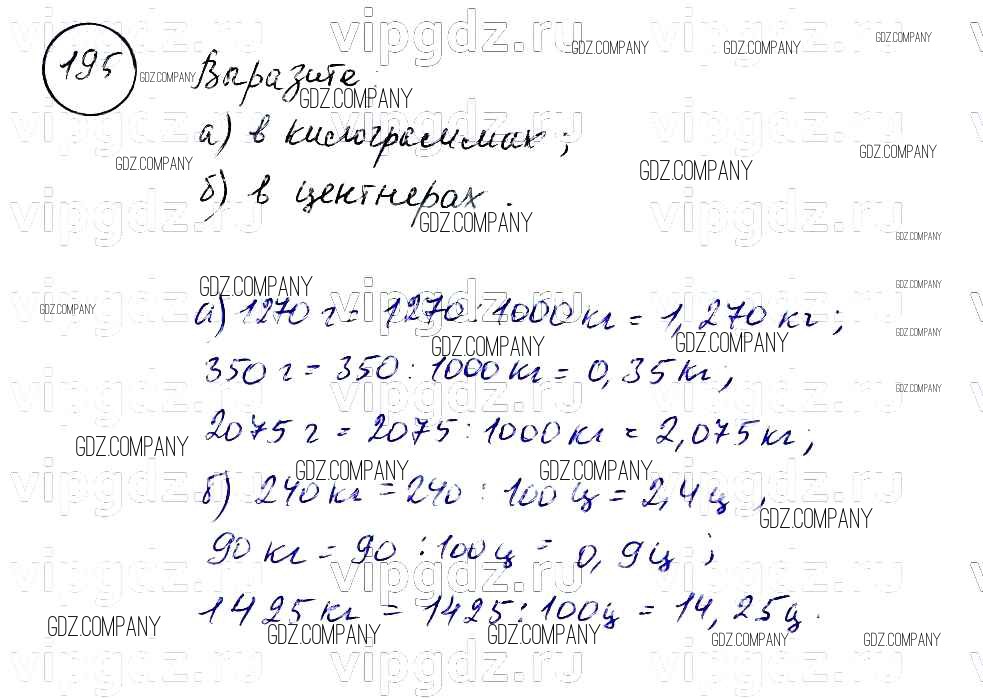 195 Выразите:
а) в килограммах;
б) в центнерах.
а) 1270 г = 1270 : 1000 кг = 1,270 кг;
350 г = 350 : 1000 кг = 0,35 кг;
2075 г = 2075 : 1000 кг = 2,075 кг;
б) 240 кг = 240 : 100 ц = 2,4 ц,
90 кг = 90 : 100 ц = 0,9 ц;
1425 кг = 1425 : 100 ц = 14,25 ц.
vipgdz.ru
GDZ.COMPANY